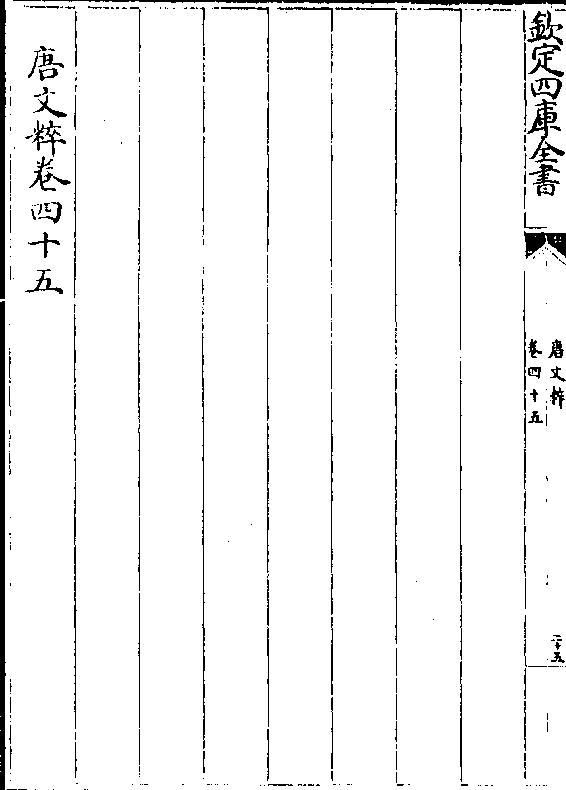 欽定四庫全書
唐文粹
卷四十五
二十五
唐文粹卷四十五